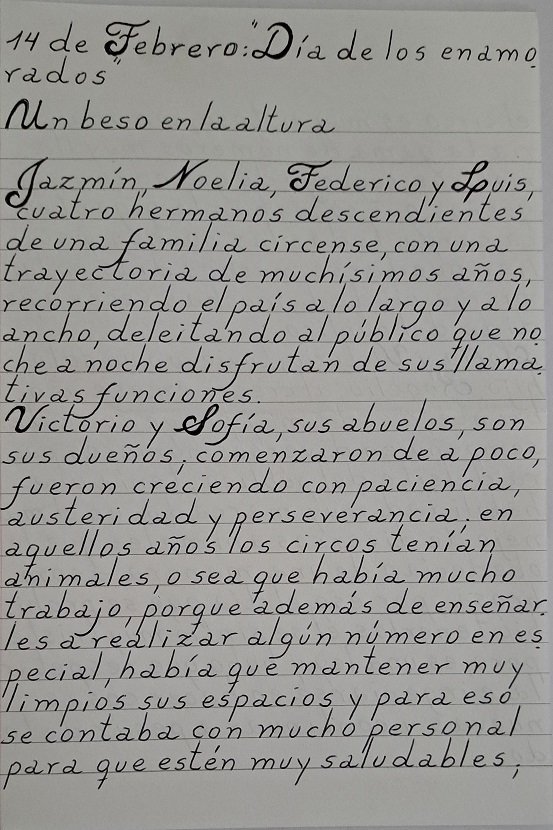 14 de Febrero: "Día de los enamo
rados"
Un beso en la altura
Jazmín, Noelia, Federico y Luis,
cuatro hermanos descendientes
de una familia circense, con una
trayectoria de muchísimos años,
recorriendo el país a lo largo y a lo
ancho, deleitando al público que no
che a noche disfrutan de sus llama
tivas funciones.
Victorio y Sofía, sus abuelos, son
sus dueños; comenzaron de a poco,
fueron creciendo con paciencia,
austeridad y perseverancia; en
aquellos años los circos tenían
animales, o sea que había mucho
trabajo, porque además de enseñar
les a realizar algún número en es
pecial, había que mantener muy
limpios sus espacios y para eso
se contaba con mucho personal
para que estén muy saludables;